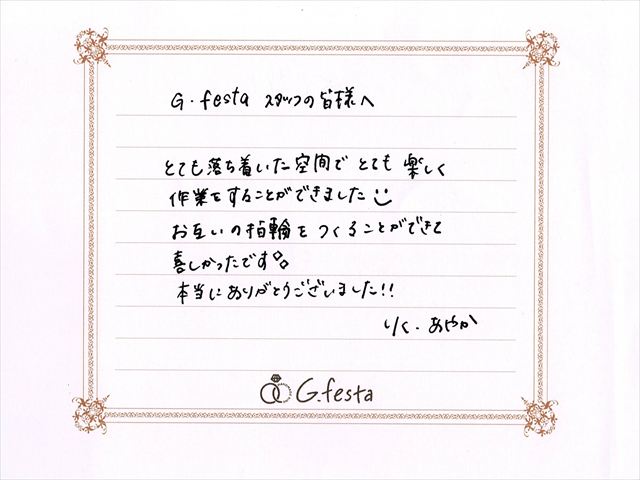 G.festa スタッフの皆様へ
とても落ち着いた空間で とても 楽しく
作業をすることができました
お互いの指輪を つくることができて
喜しかったです。
本当にありがとうございました!!
りく・あやか
G.festa